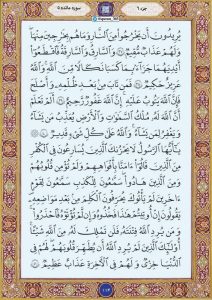 جزء ٦
سوره مائده ٥
يُرِيدُونَ أَن يَخْرُجُوا مِنَ النَّارِ وَمَا هُم بِخَارِجِينَ مِنْهَا
وَلَهُمْ عَذَابٌ مُّقِيمٌ ٣٧ وَالسَّارِقُ وَالسَّارِقَةُ فَاقْطَعُوا
أَيْدِيَهُمَا جَزَاءً بِمَا كَسَبَا نَكَالًا مِّنَ اللَّهِ وَاللَّهُ
عَزِيزٌ حَكِيمٌ ٣٨ فَمَن تَابَ مِن بَعْدِ ظُلْمِهِ وَأَصْلَحَ
فَإِنَّ اللَّهَ يَتُوبُ عَلَيْهِ إِنَّ اللَّهَ غَفُورٌ رَّحِيمٌ ٣٩ أَلَمْ تَعْلَمْ
أَنَّ اللَّهَ لَهُ مُلْكُ السَّمَاوَاتِ وَالْأَرْضِ يُعَذِّبُ مَن يَشَاءُ
وَيَغْفِرُ لِمَن يَشَاءُ وَاللَّهُ عَلَىٰ كُلِّ شَيْءٍ قَدِيرٌ ٤٠
يَا أَيُّهَا الرَّسُولُ لَا يَحْزُنكَ الَّذِينَ يُسَارِعُونَ فِي الْكُفْرِ
مِنَ الَّذِينَ قَالُوا آمَنَّا بِأَفْوَاهِهِمْ وَلَمْ تُؤْمِن قُلُوبُهُمْ
وَمِنَ الَّذِينَ هَادُوا سَمَّاعُونَ لِلْكَذِبِ سَمَّاعُونَ لِقَوْمٍ
آخَرِينَ لَمْ يَأْتُوكَ يُحَرِّفُونَ الْكَلِمَ مِن بَعْدِ مَوَاضِعِهِ
يَقُولُونَ إِنْ أُوتِيتُمْ هَٰذَا فَخُذُوهُ وَإِن لَّمْ تُؤْتَوْهُ فَاحْذَرُوا
وَمَن يُرِدِ اللَّهُ فِتْنَتَهُ فَلَن تَمْلِكَ لَهُ مِنَ اللَّهِ شَيْئًا
أُولَٰئِكَ الَّذِينَ لَمْ يُرِدِ اللَّهُ أَن يُطَهِّرَ قُلُوبَهُمْ لَهُمْ فِي
الدُّنْيَا خِزْيٌ وَلَهُمْ فِي الْآخِرَةِ عَذَابٌ عَظِيمٌ ٤١
١١٤